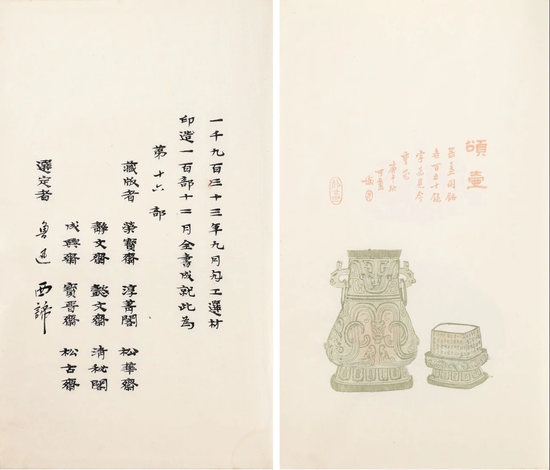 一千九百三十三年九月勾工選材
印造一百部十二月全書成就此為
第十六部
藏版者 榮寶齋 淳菁閣 松華齋
靜文齋 懿文齋 清秘閣
成興齋 寶晉齋 松古齋
選定者 魯迅 西諦
頌壺
百五十餘